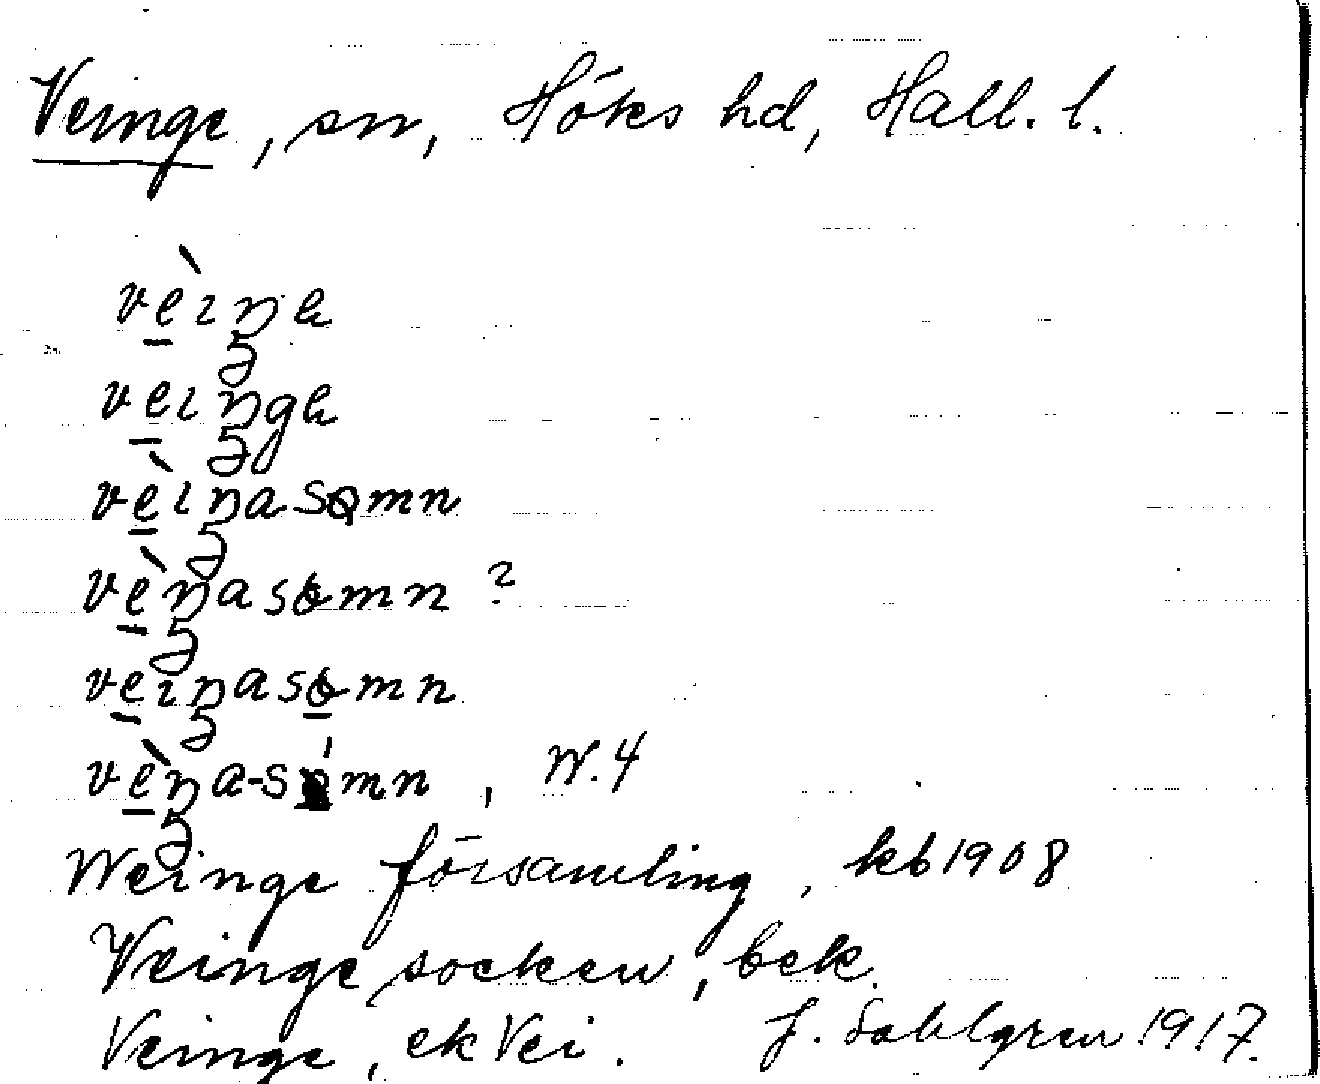 Veinge, sn, Höks hd, Hall. l.
vèiŋe
veiŋge
vèiŋasomn
vèŋasomn ?
veiŋasomn
vèŋa-s mn, W.4
Weinge församling, kb 1908
Veinge socken, bek.
Veinge, ek Vei. J. Sahlgren 1917.